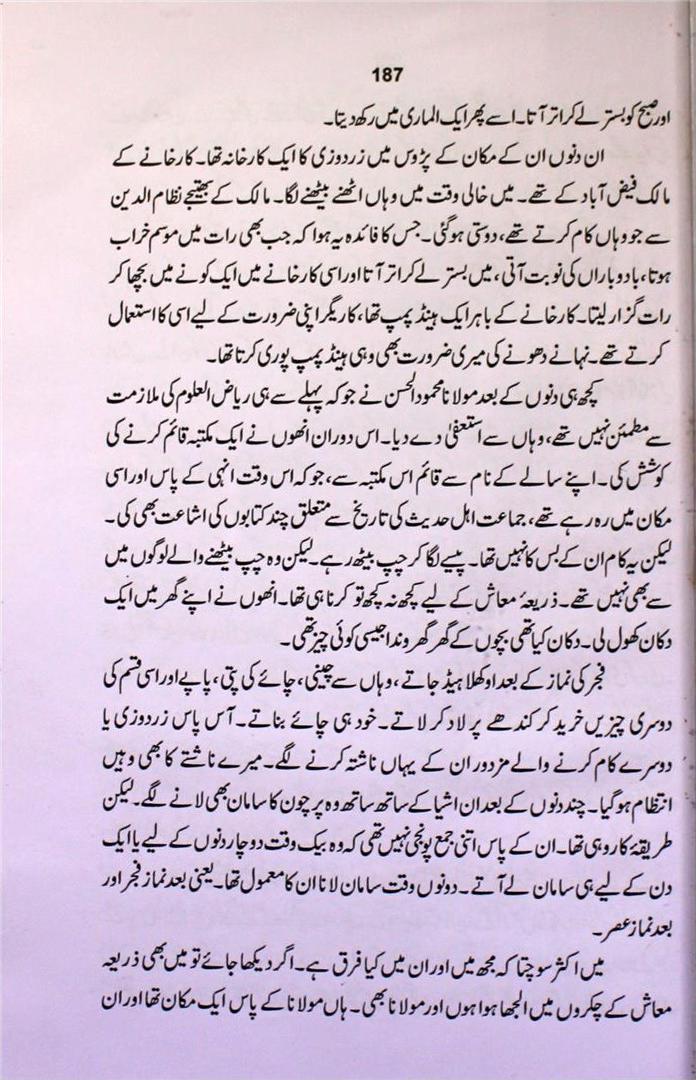 187
اور صبح کو بستر لے کر اتر آتا۔ اسے پھر ایک الماری میں رکھ دیتا۔
ان دنوں ان کے مکان کے پڑوس میں زردوزی کا ایک کارخانہ تھا۔ کارخانے کے
مالک فیض آباد کے تھے۔ میں خالی وقت میں وہاں اٹھنے بیٹھنے لگا۔ مالک کے بھتیجے نظام الدین
سے جو وہاں کام کرتے تھے، دوستی ہوگئی۔ جس کا فائدہ یہ ہوا کہ جب بھی رات میں موسم خراب
ہوتا، باد و باراں کی نوبت آتی، میں بستر لے کر اتر آتا اور اسی کارخانے میں ایک کونے میں بچھا کر
رات گزار لیتا۔ کارخانے کے باہر ایک ہینڈ پمپ تھا، کاریگر اپنی ضرورت کے لیے اسی کا استعمال
کرتے تھے۔ نہانے دھونے کی میری ضرورت بھی وہی ہینڈ پمپ پوری کرتا تھا۔
کچھ ہی دنوں کے بعد مولانا محمود الحسن نے جو کہ پہلے سے ہی ریاض العلوم کی ملازمت
سے مطمئن نہیں تھے، وہاں سے استعفیٰ دے دیا۔ اس دوران انھوں نے ایک مکتبہ قائم کرنے کی
کوشش کی۔ اپنے سالے کے نام سے قائم اس مکتبہ سے، جو کہ اس وقت انہی کے پاس اور اسی
مکان میں رہ رہے تھے، جماعت اہل حدیث کی تاریخ سے متعلق چند کتابوں کی اشاعت بھی کی۔
لیکن یہ کام ان کے بس کا نہیں تھا۔ پیسے لگا کر چپ بیٹھ رہے۔ لیکن وہ چپ بیٹھنے والے لوگوں میں
سے بھی نہیں تھے۔ ذریعۂ معاش کے لیے کچھ نہ کچھ تو کرنا ہی تھا۔ انھوں نے اپنے گھر میں ایک
دکان کھول لی۔ دکان کیا تھی بچوں کے گھر گھروندا جیسی کوئی چیز تھی۔
فجر کی نماز کے بعد اوکھلا ہیڈ جاتے، وہاں سے چینی، چائے کی پتی، پاپے اور اسی قسم کی
دوسری چیزیں خرید کر کندھے پر لاد کر لاتے۔ خود ہی چائے بناتے۔ آس پاس زردوزی یا
دوسرے کام کرنے والے مزدور ان کے یہاں ناشتہ کرنے لگے۔ میرے ناشتے کا بھی وہیں
انتظام ہوگیا۔ چند دنوں کے بعد ان اشیا کے ساتھ ساتھ وہ پرچون کا سامان بھی لانے لگے۔ لیکن
طریقۂ کار وہی تھا۔ ان کے پاس اتنی جمع پونجی نہیں تھی کہ وہ بیک وقت دو چار دنوں کے لیے یا ایک
دن کے لیے ہی سامان لے آتے۔ دونوں وقت سامان لانا ان کا معمول تھا۔ یعنی بعد نماز فجر اور
بعد نماز عصر۔
میں اکثر سوچتا کہ مجھ میں اور ان میں کیا فرق ہے۔ اگر دیکھا جائے تو میں بھی ذریعہ
معاش کے چکروں میں الجھا ہوا ہوں اور مولانا بھی۔ ہاں مولانا کے پاس ایک مکان تھا اور ان